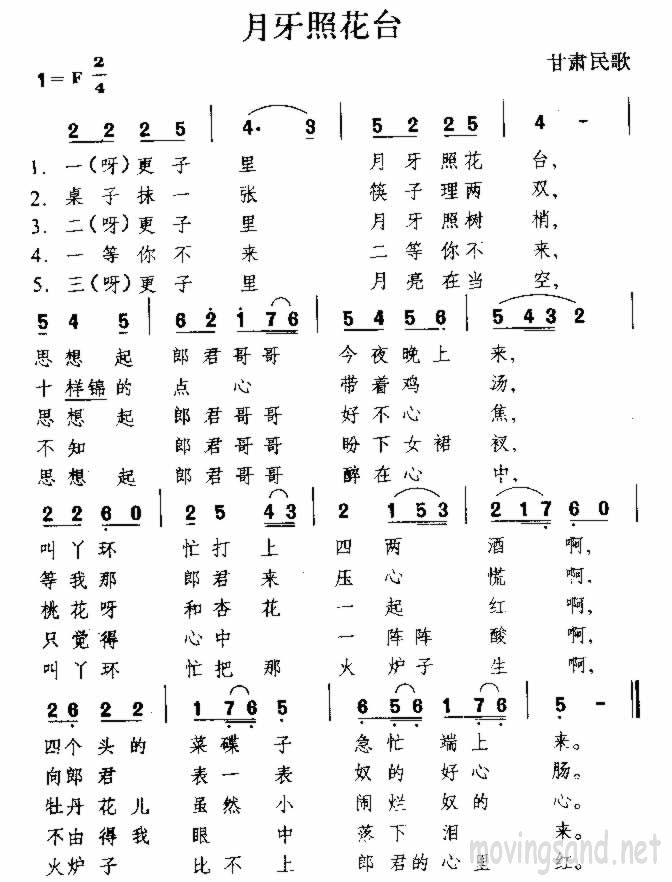 月牙照花台
1=F 2/4
甘肃民歌
2 2 2 5 | 4· 3 | 5 2 2 5 | 4 - |
1. 一(呀)更子里 月牙照花台,
2. 桌子抹一张 筷子理两双,
3. 二(呀)更子里 月牙照树梢,
4. 一等你不来 二等你不来,
5. 三(呀)更子里 月亮在当空,
5 4 5 | 6 2 1 7 6 | 5 4 5 6 | 5 4 3 2 |
思想起 郎君哥哥 今夜晚上来,
十样锦的点心 带着鸡汤,
思想起 郎君哥哥 好不心焦,
不知 郎君哥哥 盼下女裙衩,
思想起 郎君哥哥 醉在心中,
2 2 6 0 | 2 5 4 3 | 2 1 5 3 | 2 1 7 6 0 |
叫丫环 忙打上 四两酒啊,
等我那 郎君来 压心慌啊,
桃花呀 和杏花 一起红啊,
只觉得 心中 一阵阵酸啊,
叫丫环 忙把那 火炉子生啊,
2 6 2 2 | 1 7 6 5 | 6 5 6 1 7 6 | 5 - ‖
四个头的菜碟子 急忙端上来。
向郎君 表一表 奴的好心肠。
牡丹花儿虽然小 闹烂奴的心。
不由得我眼中 落下泪来。
火炉子 比不上 郎君的心里红。
movingsand.net